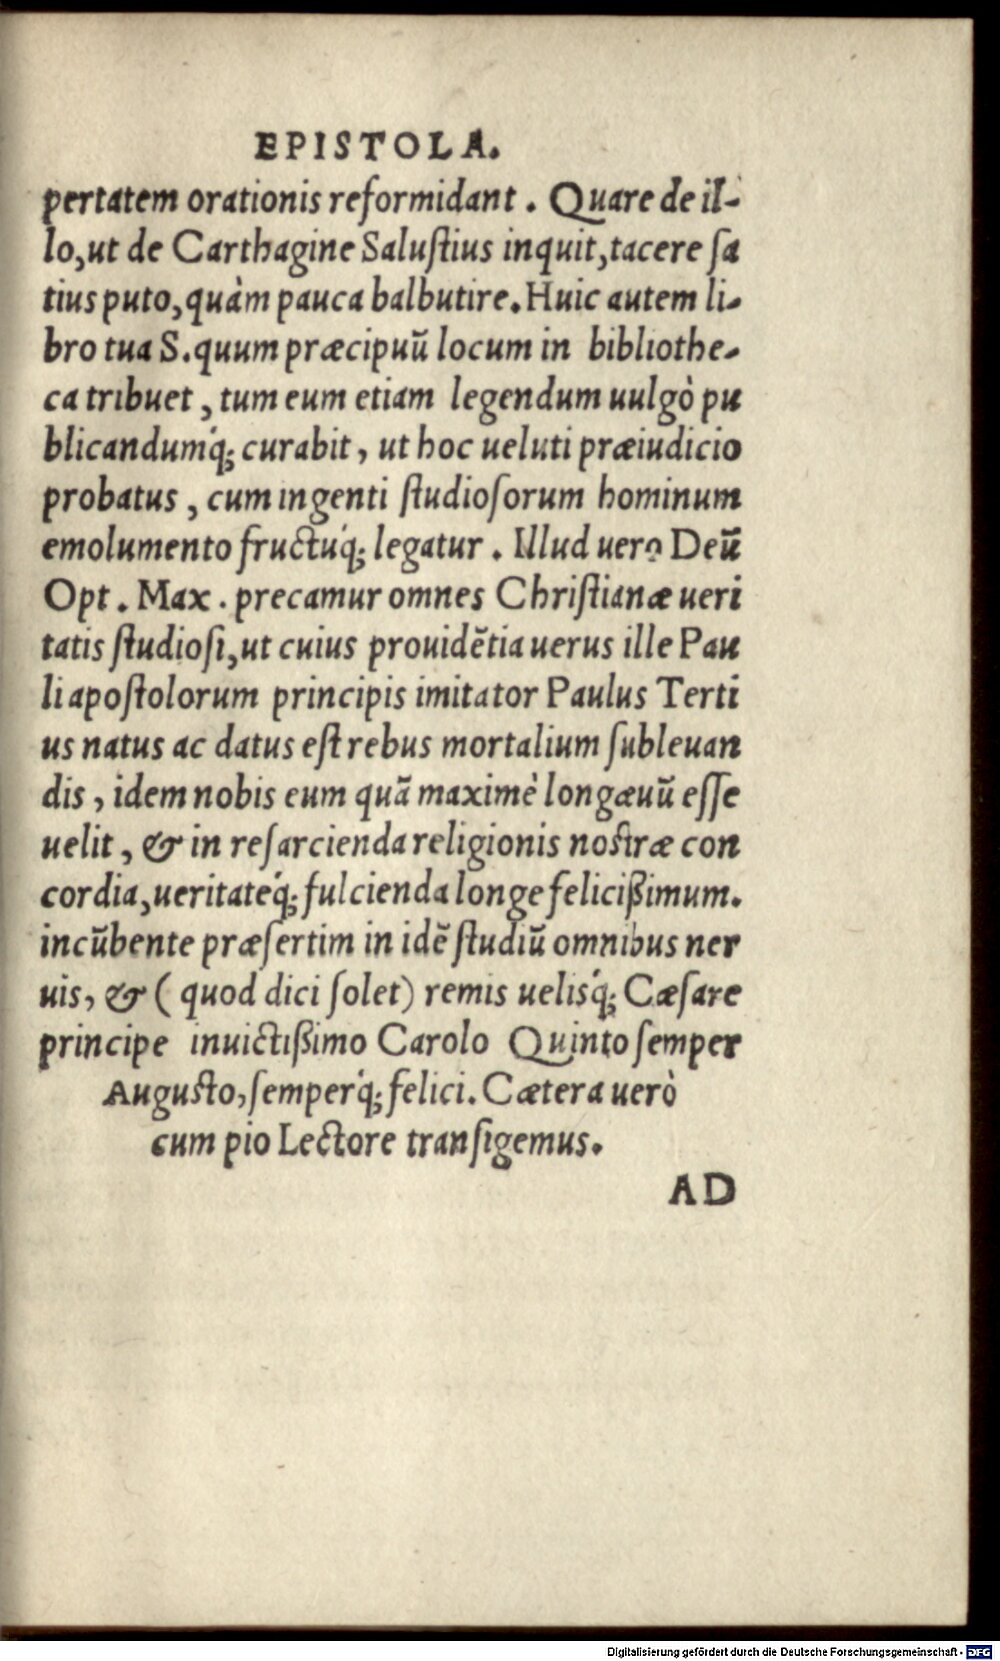 EPISTOLA.
pertatem orationis reformidant. Quare de il-
lo, ut de Carthagine Salustius inquit, tacere sa
tius puto, quàm pauca balbutire. Huic autem li-
bro tua S. quum præcipuũ locum in bibliothe-
ca tribuet, tum eum etiam legendum uulgò pu
blicandumq́; curabit, ut hoc ueluti præiudicio
probatus, cum ingenti studiosorum hominum
emolumento fructuq́; legatur. Illud uero Deũ
Opt. Max. precamur omnes Christianæ ueri
tatis studiosi, ut cuius prouidẽtia uerus ille Pau
li apostolorum principis imitator Paulus Terti
us natus ac datus est rebus mortalium subleuan
dis, idem nobis eum quã maximè longæuũ esse
uelit, & in resarcienda religionis nostræ con
cordia, ueritateq́; fulcienda longe felicißimum.
incũbente præsertim in idẽ studiũ omnibus ner
uis, & (quod dici solet) remis uelisq́; Cæsare
principe inuictißimo Carolo Quinto semper
Augusto, semperq́; felici. Cætera uerò
cum pio Lectore transigemus.
AD
Digitalisierung gefördert durch die Deutsche Forschungsgemeinschaft - DFG